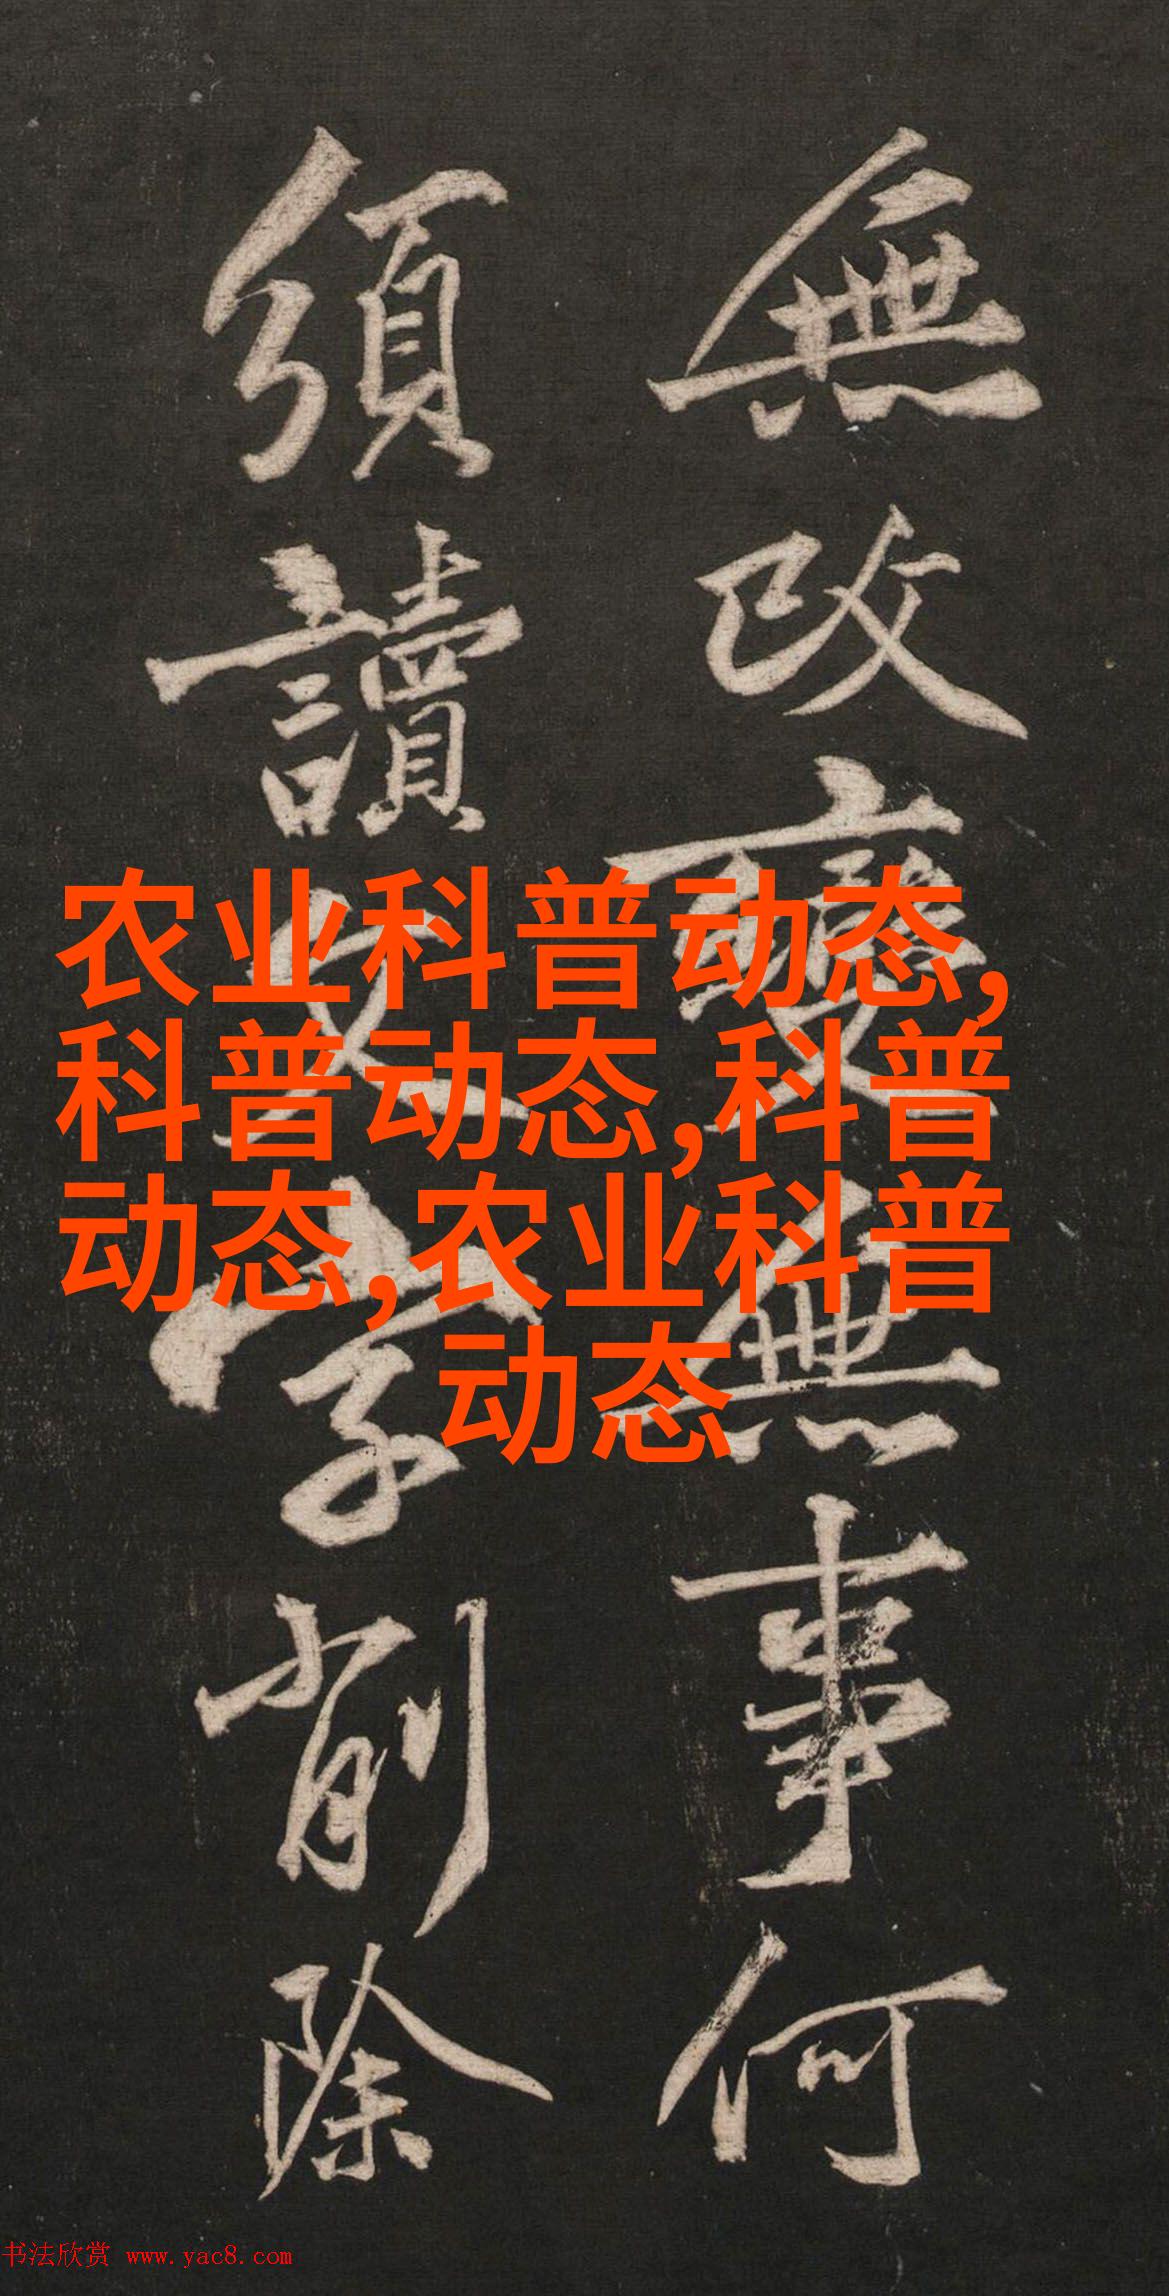 無改變無事何
須讀文字削除
农业科普动态,
科普动态,科普
动态,农业科普
动态
书法欣赏 www.yac8.com